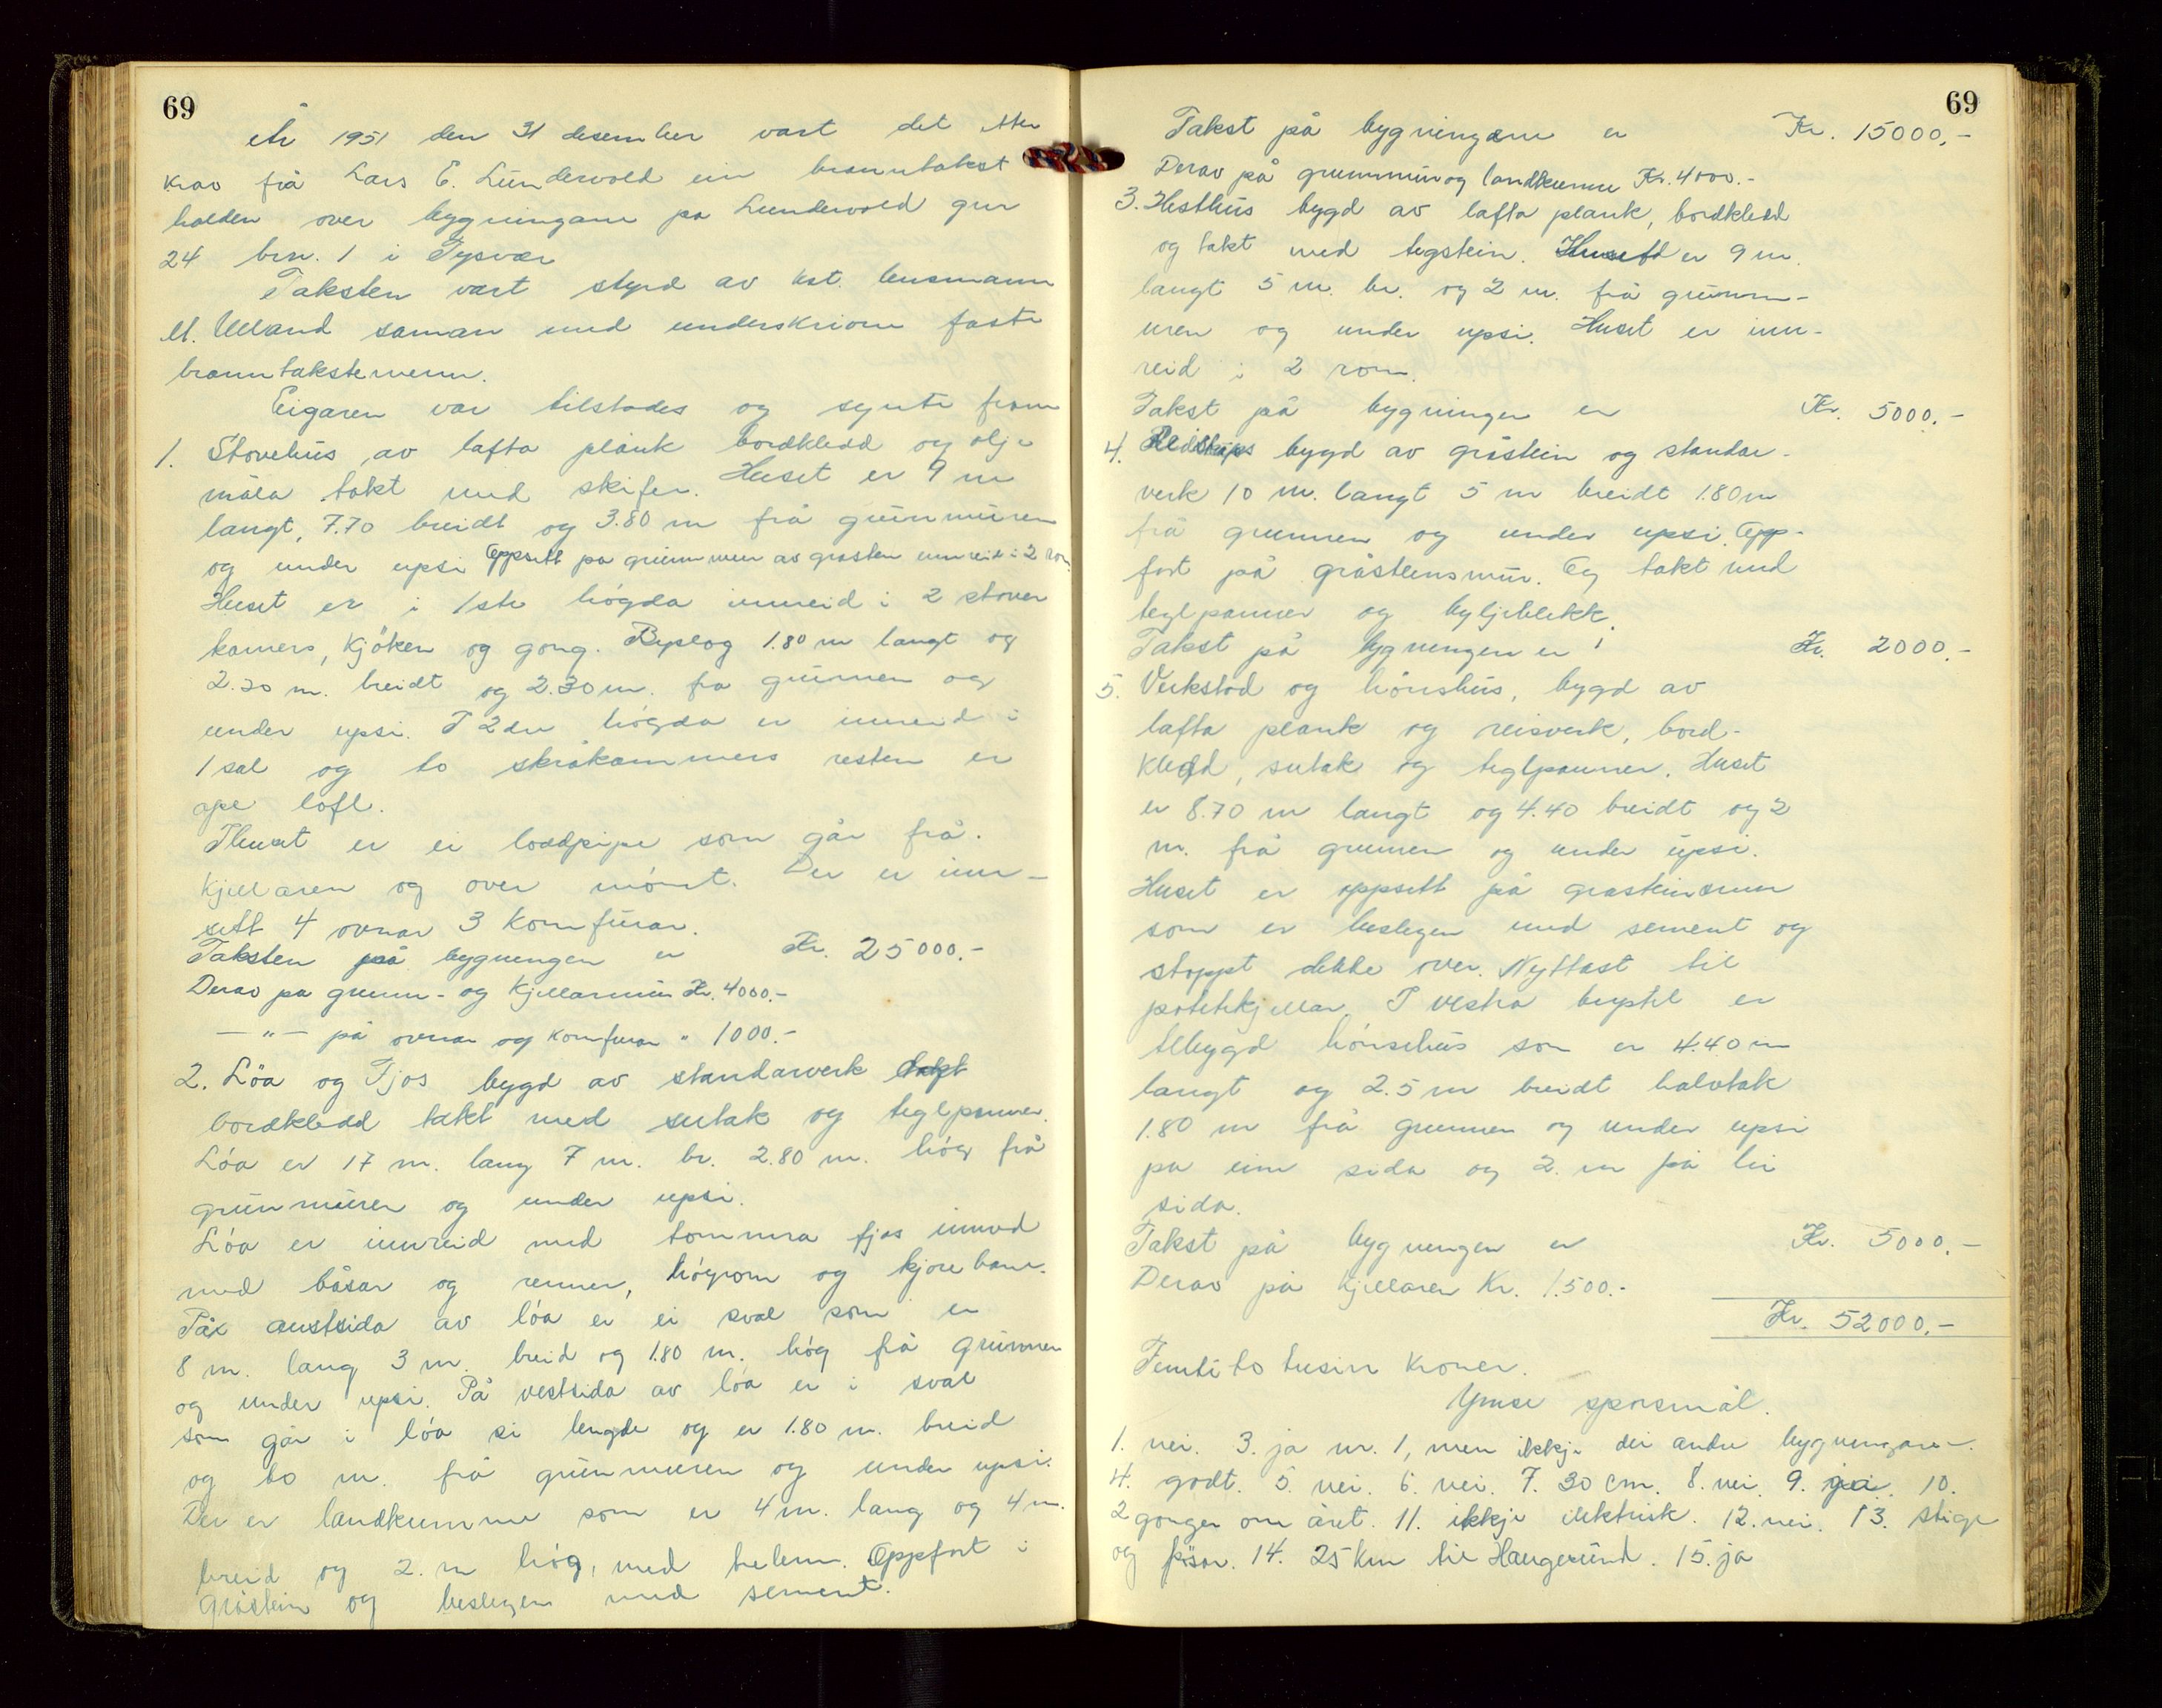 69
År 1951 den 31 desember vart det etter
krav frå Lars E. Lundervold ein branntakst
halden over bygningane på Lundervold gnr
24 brn. 1 i Tysvær
Taksten vart styrd av kst. lensmann
M. Ueland saman med underskrivne faste
branntakstemenn.
Eigaren var tilstades og synte fram
1. Stovehus av lafta plank bordkledd og olje
måla takt med skifer. Huset er 9 m
langt, 7.70 breidt og 3.80 m frå grunmuren
og under upsi Oppsett på grunnmur av gråstein innreid i 2 rom
Huset er i 1ste högda innreid i 2 stover
kamers, kjöken og gong. Byslag 1.80 m langt og
2.20 m. breidt og 2.30 m. fra grunnen og
under upsi. I 2dre högda er innreid i
1 sal og to skråkammers resten er
ope loft.
I huset er ei loddpipe som går frå.
kjellaren og over mönet. Der er inn-
sett 4 ovnar 3 komfurar.
Taksten på bygningen er Kr. 25000.-
Derav på grunn- og kjellarmur Kr. 4000.-
— " — på ovnar og komfurar " 1000.-
2. Löa og Fjos bygd av standarverk takt
bordkledd takt med sutak og teglpanner.
Löa er 17 m. lang 7 m. br. 2.80 m. hög frå
grunmuren og under upsi.
Löa er innreid med tommra fjos innved
med båsar og renner, högrom og kjörebane.
På austsida av löa er ei sval som er
8 m. lang 3 m. breid og 1.80 m. hög frå grunnen
og under upsi. På vestsida av löa er i sval
som går i löa si lengde og er 1.80 m. breid
og to m. frå grunmuren og under upsi.
Der er landkumme som er 4 m. lang og 4 m.
breid og 2. m hög, med helem. Oppfort i
gråstein og beslegen med sement.
69
Takst på bygningane er Kr. 15000,-
Derav på grunnmur og landkumme Kr. 4000.-
3. Hesthus bygd av lafta plank, bordkledd
og takt med tegstein. Huset er 9 m.
langt 5 m. br. og 2 m. frå grunnm-
uren og under upsi. Huset er inn-
reid i 2 rom.
Takst på bygningen er Kr. 5000.-
4. Reidskaps bygd av gråstein og standar-
verk 10 m. langt 5 m breidt 1.80 m
frå grunnen og under upsi. Opp-
fort på gråsteinsmur. Og takt med
teglpanner og bylgjeblekk.
Takst på bygningen er Kr. 2000.-
5. Verkstad og hönshus, bygd av
lafta plank og reisverk, bord-
kledd, sutak og teglpanner. Huset
er 8.70 m langt og 4.40 breidt og 2
m. frå grunnen og under upsi.
Huset er oppsett på grasteinsmur
som er beslegen med sement og
stoppt dekke over. Nyttast til
potetkjellar. I vestra bustel er
tilbygd hönsehus som er 4.40 m
langt og 2.5 m breidt halvtak
1.80 m frå grunnen og under upsi
pa eine sida og 2. m på hi
sida.
Takst på bygningen er Kr. 5000.-
Derav på kjellaren Kr. 1.500.-
Kr. 52000.-
Femti to tusin kroner.
Ymse spørsmål.
1. nei. 3. ja nr. 1, men ikkje dei andre bygningane.
4. godt. 5. nei. 6. nei. 7. 30 cm. 8. nei. 9. ja. 10.
2 gonger om året. 11. ikkje elektrisk. 12. nei. 13. stige
og fösar. 14. 25 km til Haugesund. 15. ja